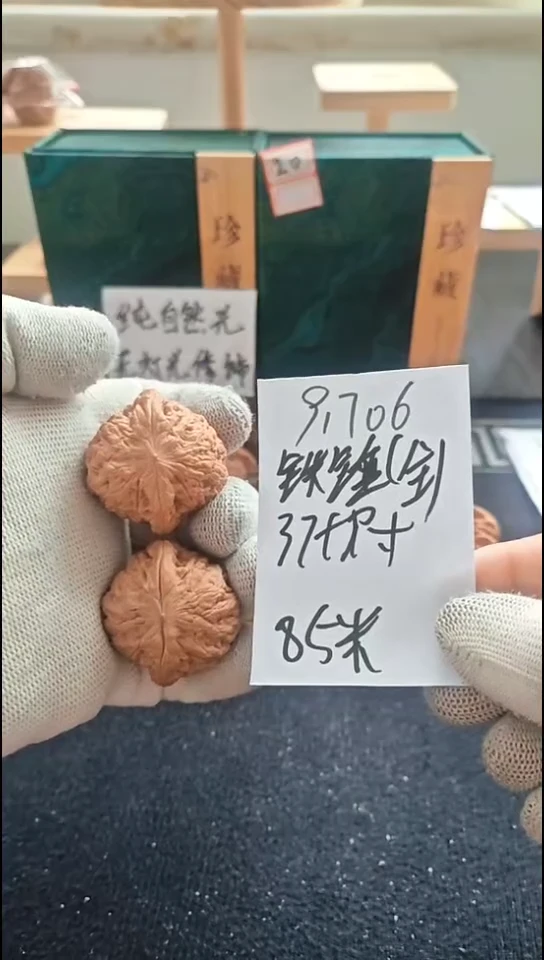 珍藏
20
珍藏
纯自然尺
无打尺修饰
9,706
铁锤(全)
37+尺寸
85米